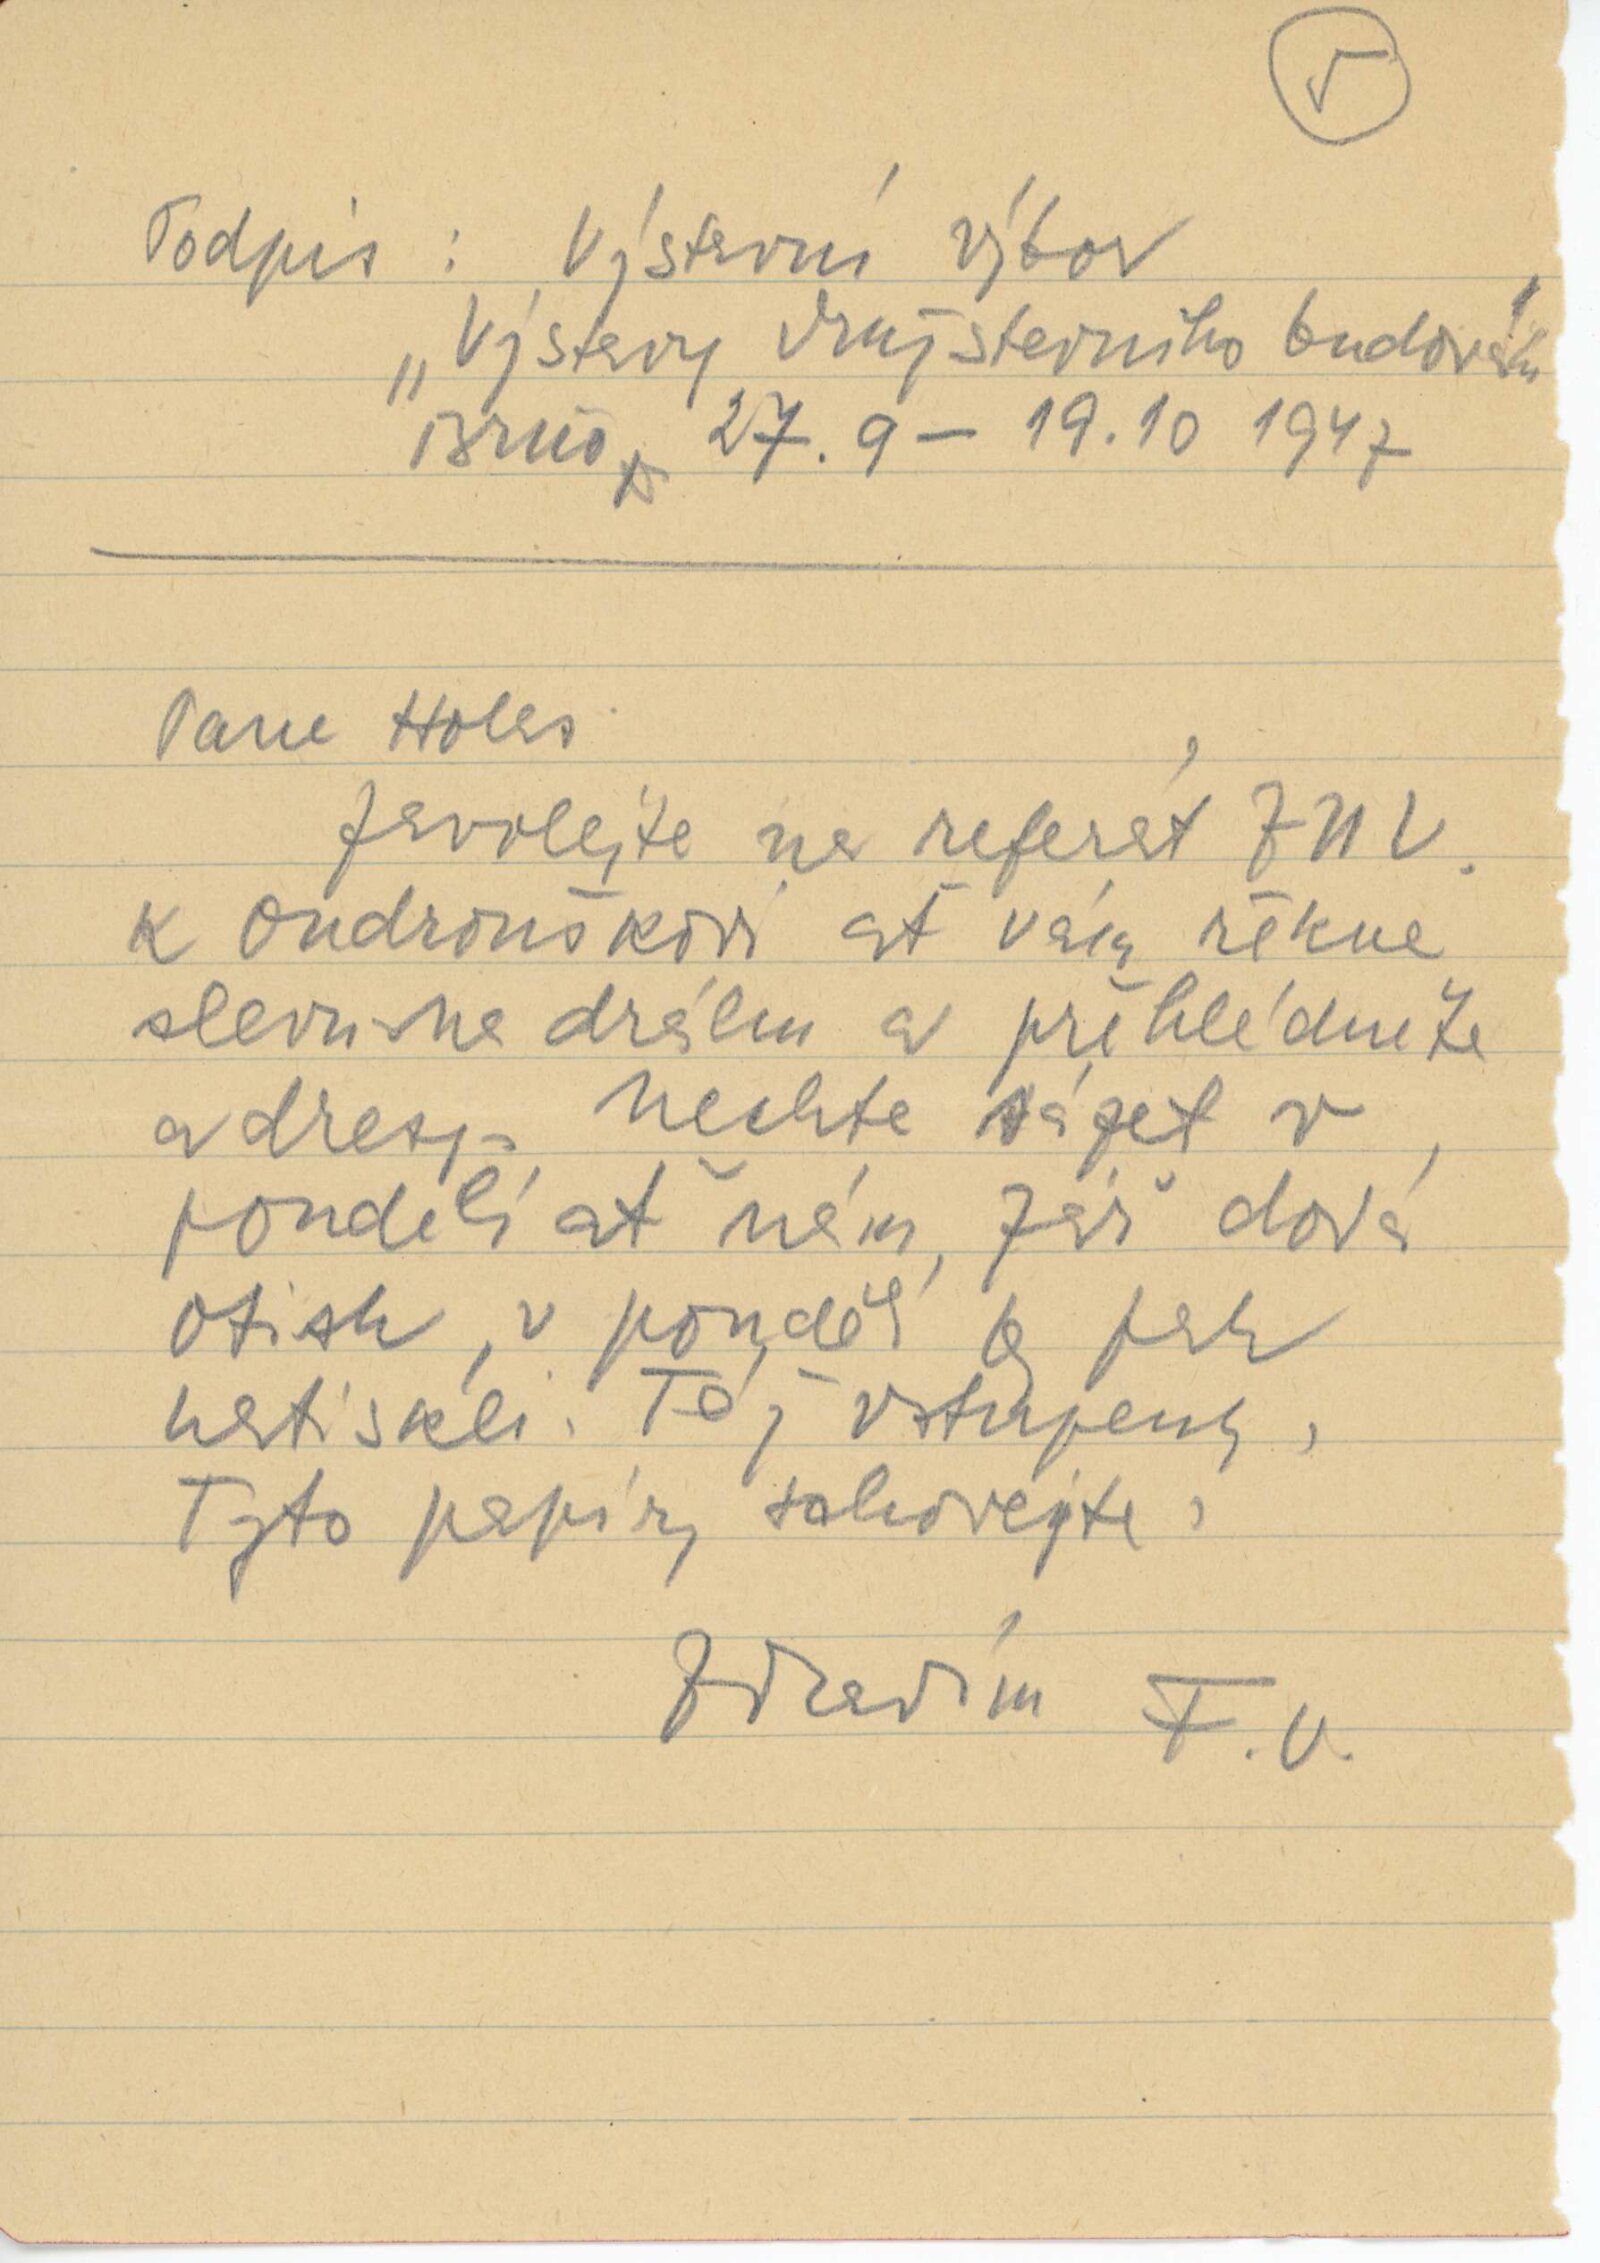 √
Podpis : Výstavní výbor
„Výstavy družstevního budování
Brno 27. 9 – 19. 10 1947
Pane Holas
Zavolejte na referát ZNV.
k Ondrouškovi ať vám řekne
slevu na dráhu a přihlédněte
adresy. Nechte sázet v
pondělí ať nám, zář dová
otisk, v pondělí by pak
natiskli. Též vstupenky,
Tyto papíry schovejte.
Zdravím F. V.